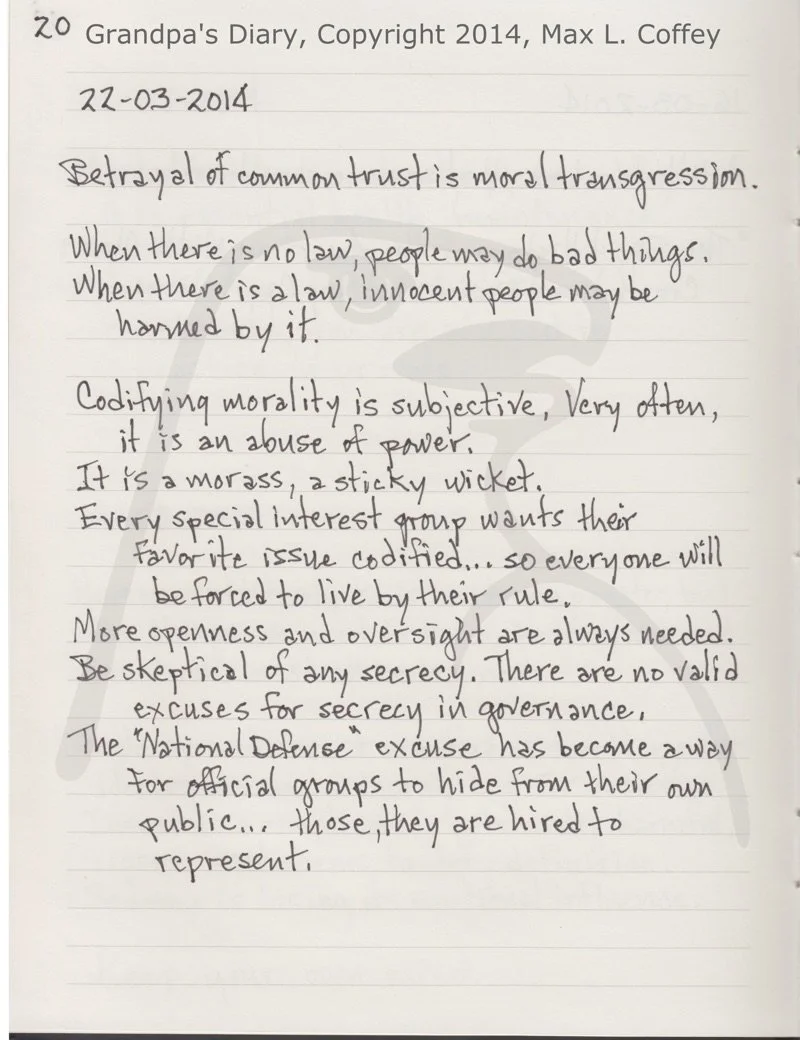 20 Grandpa's Diary, Copyright 2014, Max L. Coffey
22-03-2014
Betrayal of common trust is moral transgression.
When there is no law, people may do bad things.
When there is a law, innocent people may be
harmed by it.
Codifying morality is subjective, Very often,
it is an abuse of power.
It is a morass, a sticky wicket.
Every special interest group wants their
favorite issue codified... so everyone will
be forced to live by their rule.
More openness and oversight are always needed.
Be skeptical of any secrecy. There are no valid
excuses for secrecy in governance.
The "National Defense" excuse has become a way
for official groups to hide from their own
public... those, they are hired to
represent.